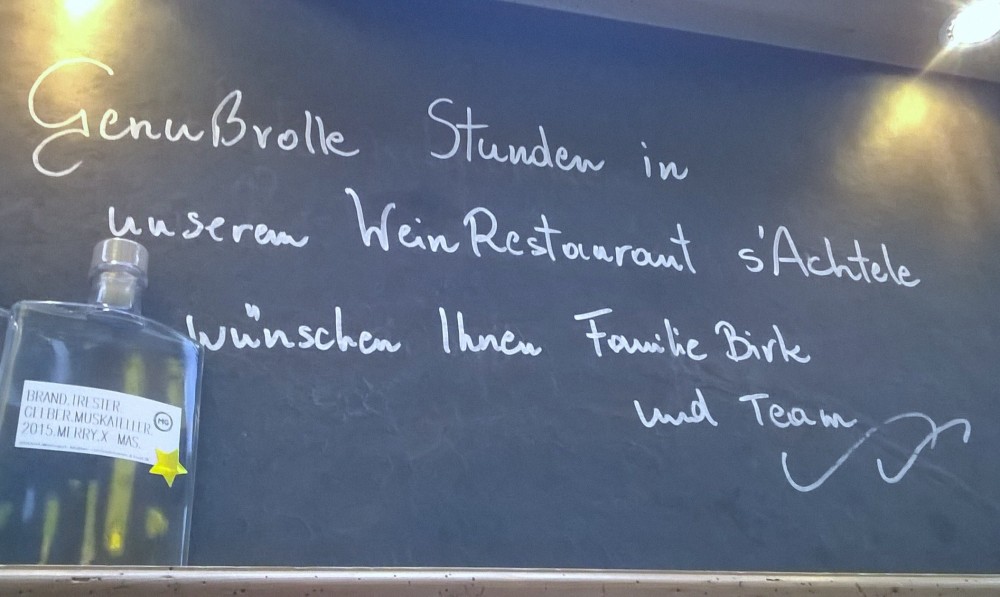 Genußvolle Stunden in
unserem WeinRestaurant s'Achtele
wünschen Ihnen Familie Birk
und Team
BRAND.TRESTER.
GELBER.MUSKATELLER.
2015.MERRY.X MAS.
MG